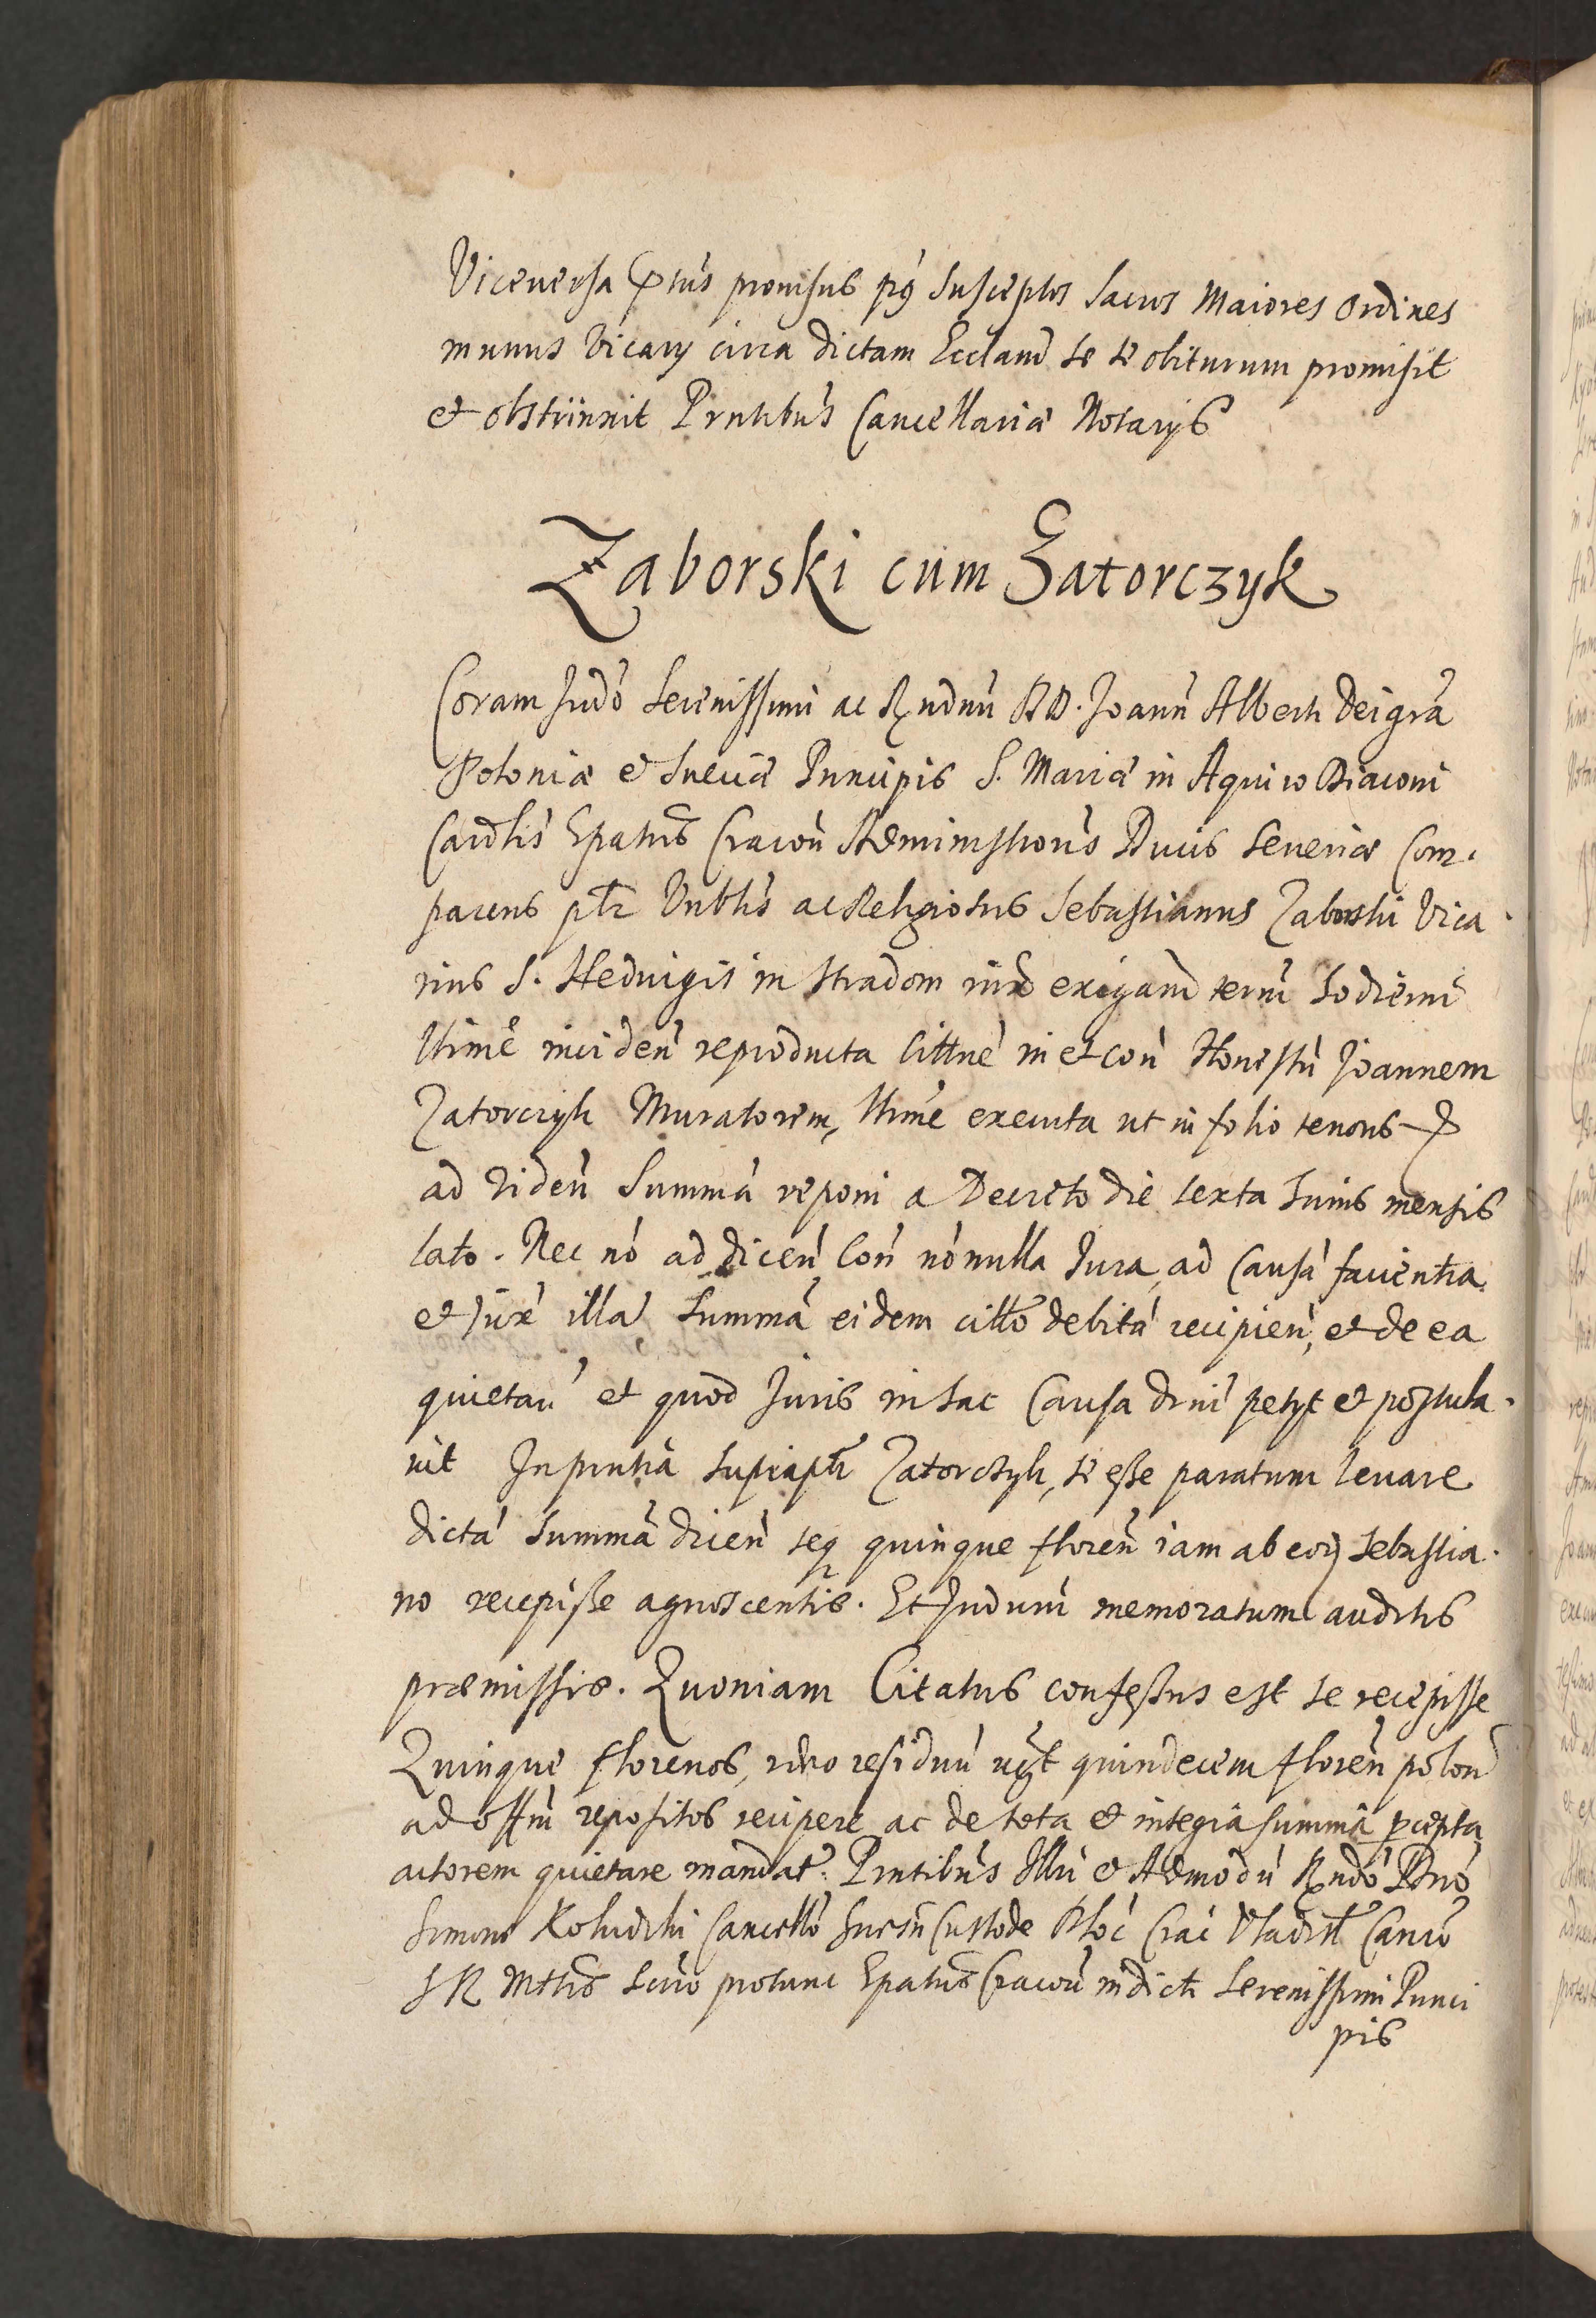 Viceuersa Ptus prouisus pq susceptos Sacros Maiores Ordines
munus Vicarij circa dictam Eccland se se obiturum promisit
et obstrinxit Prntibus Cancellariæ Notarijs
Zaborski cum Zatorczyk
Coram Judo Serenissimi ac Rndmi DD. Joann Alberti Dei gra
Poloniæ et Sueciæ Principis S. Mariæ in Aquiro Diaconi
Cardlis Epatus Cracou Administroris Ducis Seueriæ Com.
parens ptr Vnblis ac Religiosus Sebastianus Zaborski Vica
rius S. Heduigis in Stradom exigand term hodierni
ltime inciden reproducta littne in et con Honestu Joannem
Zatorczyk Muratorem, ltime executa ut in folio tenoris
ad viden Summa reponi a Decreto die sexta huius mensis
lato. Nec no ad dicen Con nonulla Jura, ad Causa facientia
et illa Summa eidem citto debita recipien, et de ea
quietan et quod Juris in hac Causa petijt et postula.
uit In pntia Zatorczyk, se esse paratum leuare
dicta Summa dicen seq quinque floren iam ab eod Sebastia.
no recepisse agnoscentis. Et Judum memoratum auditis
præmissis. Quoniam Citatus confessus est se recepisse
Quinque florenos, residuu quindecem floren polon
ad offm repositos recipere ac de tota et integra summa pcepta
actorem quietare mandat. Prntibus Illri et Admodu Rndo Dno
Simone Koludzki Cancello Gnesn Custode Ploc Crac Vladisl Canco
S R Mttis Scrio protunc Epatus Cracou indicti Serenissimi Princi
pis